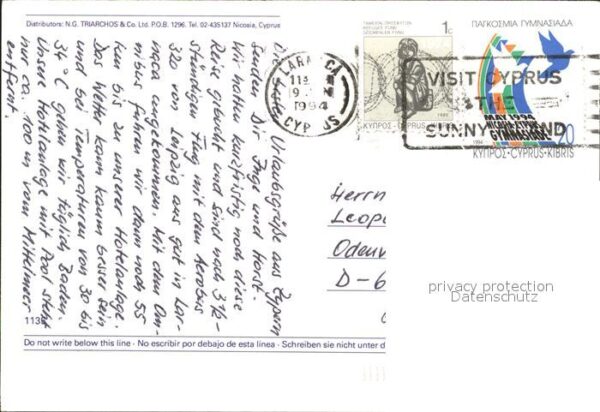 Distributors: N.G. TRIARCHOS & Co. Ltd. P.O.B. 1296. Tel. 02-435137 Nicosia, Cyprus
Urlaubsgrüße aus Zypern
senden Die Inge und Horst.
Wir haben kurzfristig noch diese
Reise gebucht und sind nach 3 1/2-
stündigen Flug mit dem Aerobus
320 von Leipzig aus gut in Lar-
naca angekommen. Mit dem Om-
nibus fuhren wir dann noch 55
km bis zu unserer Hotelanlage.
Das Wetter kann kaum besser sein
und bei Temperaturen von 30 bis
34°C gehen wir täglich Baden.
Unsere Hotelanlage mit Pool steht
nur ca. 100 m vom Mittelmeer
entfernt.
1135
Do not write below this line · No escribir por debajo de esta línea · Schreiben sie nicht unter d
LARNACA
1994
CYPRUS
1c
ΚΥΠΡΟΣ · CYPRUS
ΠΑΓΚΟΣΜΙΑ ΓΥΜΝΑΣΙΑΔΑ
VISIT CYPRUS
THE
SUNNY ISLAND
MAY 1994
GYMNASIADE
20
1994
ΚΥΠΡΟΣ-CYPRUS-KIBRIS
Herrn
Leop
Odenw
D-6
privacy protection
Datenschutz